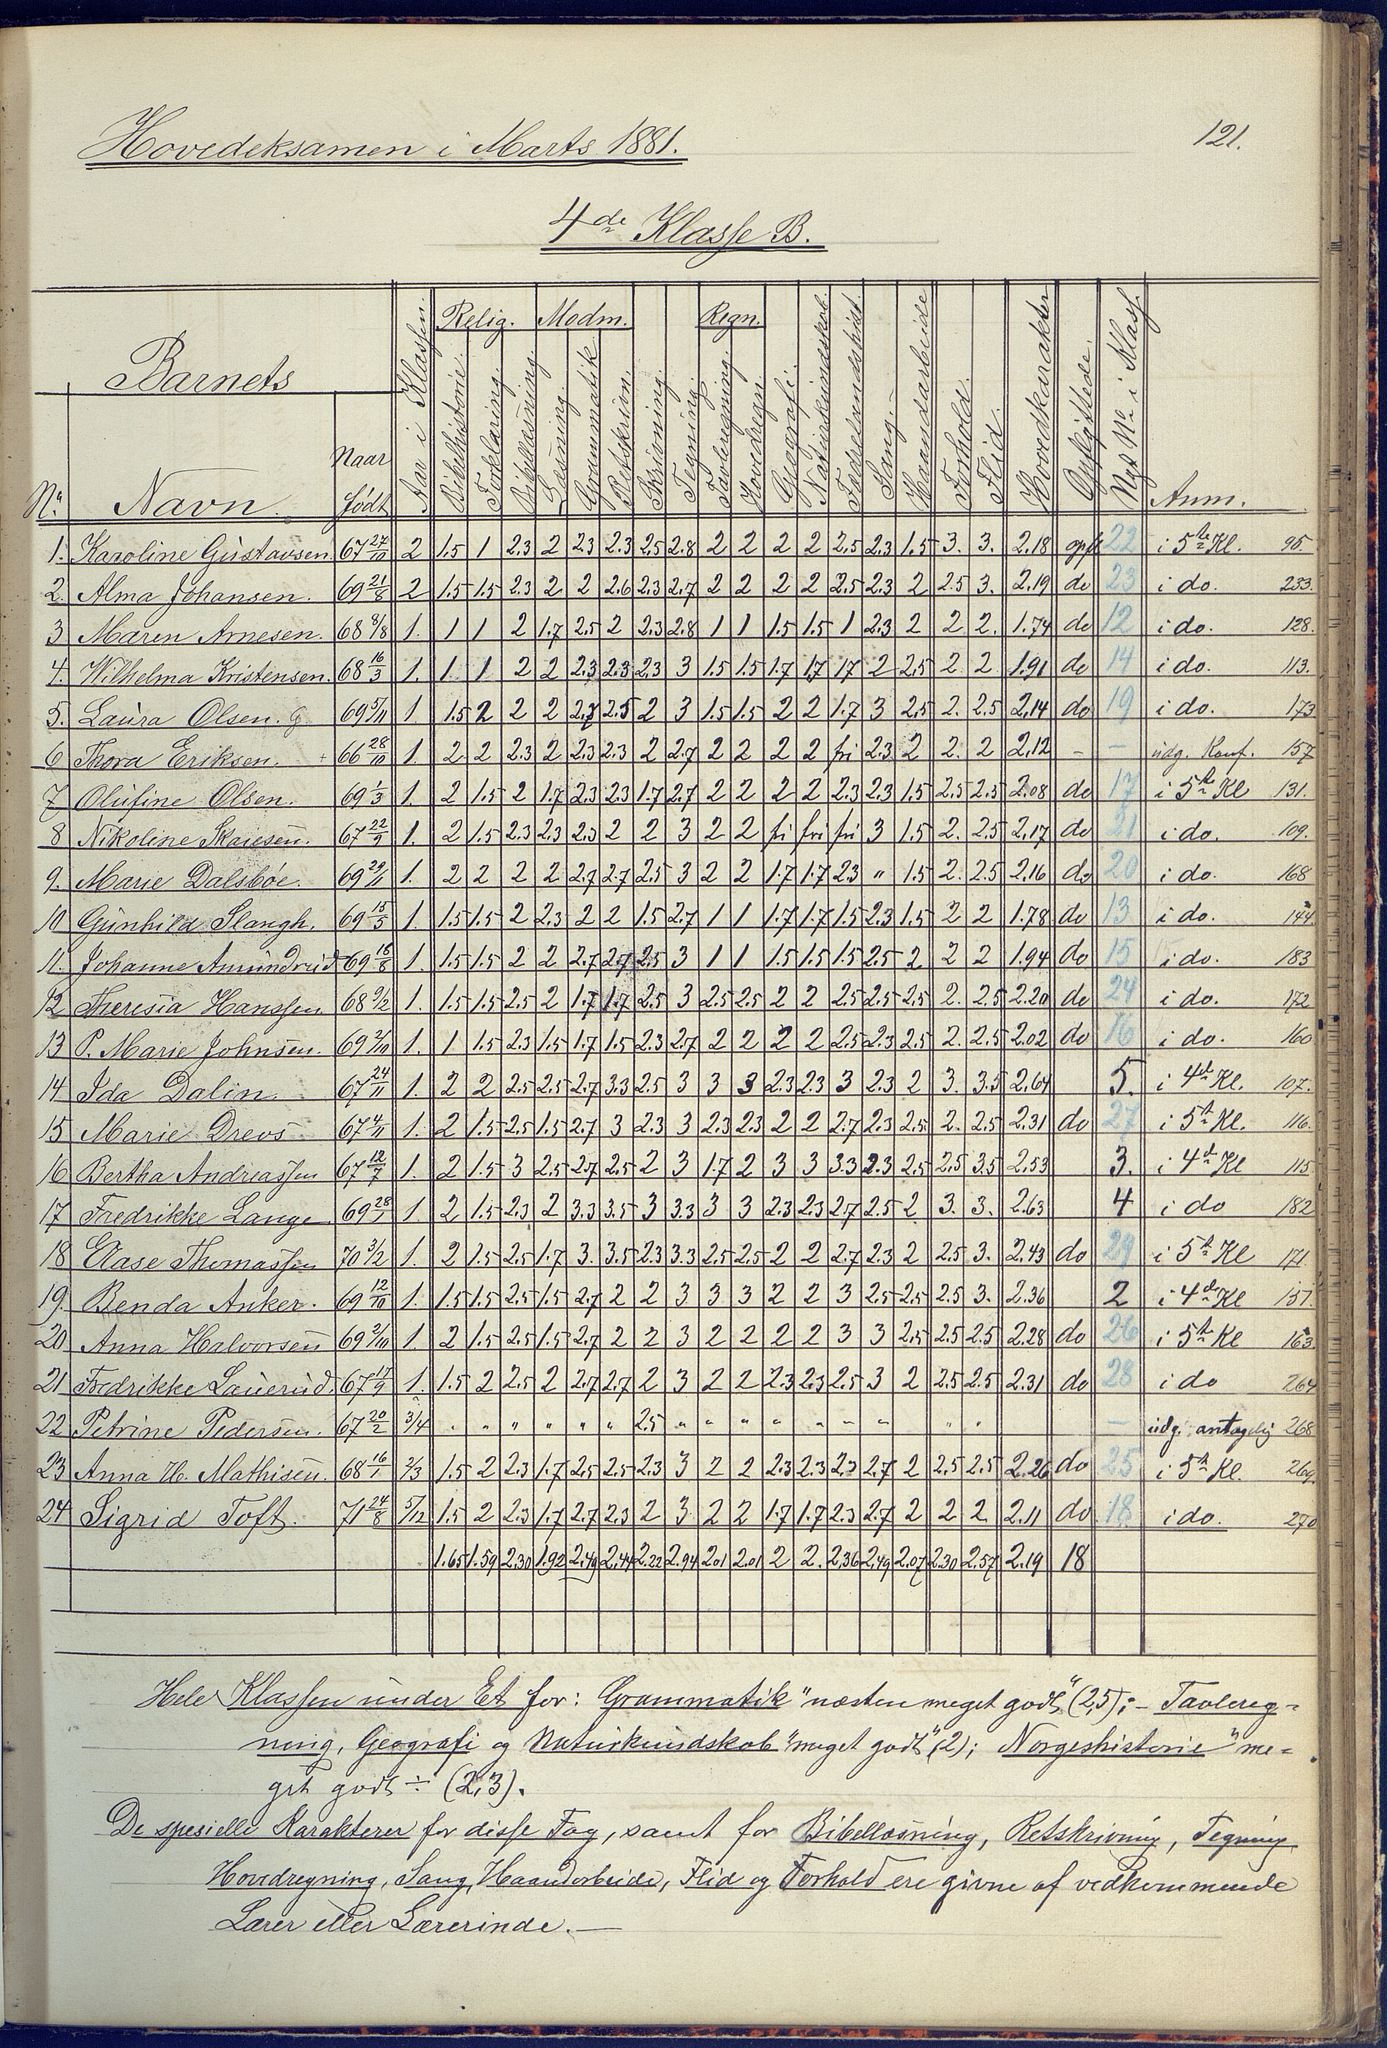 121.
Hovedeksamen i Marts 1881.
4de Klasse B.
Barnets
Relig. Modm. Regn.
No. Navn. Naar født Aar i Klassen. Bibelhistorie. Forklaring. Bibellæsning. Læsning. Grammatik. Retskrivn. Skrivning. Tegning. Tavleregning. Hovedregn. Geografi. Naturkundskab. Fædrelandshist. Sang. Haandarbeide Forhold. Flid. Hovedkarakter Opflyttede. Nyt No i Klasf. Anm.
1. Karoline Gustavsen. 67 27/10 2 1.5 1 2.3 2 2.3 2.3 2.5 2.8 2 2 2 2 2.5 2.3 1.5 3. 3. 2.18 opfl 22 i 5te Kl. 95.
2. Alma Johansen. 69 21/8 2 1.5 1.5 2.3 2 2 2.6 2.3 2.7 2 2 2 2 2.5 2.3 2 2.5 3. 2.19 do 23 i do. 233.
3 Maren Arnesen. 68 8/8 1. 1 1 2 1.7 2.5 2 2.3 2.8 1 1 1.5 1.5 1 2.3 2 2 2. 1.74 do 12 i do. 128.
4. Wilhelma Kristensen. 68 16/3 1. 1 1 2 2 2.3 2.3 2.3 3 1.5 1.5 1.7 1.7 1.7 2 2.5 2. 2 1.91 do 14 i do. 113.
5. Laura Olsen. G 69 5/11 1 1.5 2 2 2 2.7 2.5 2 3 1.5 1.5 2 2 1.7 3 2.5 2. 2.5 2.14 do 19 i do. 173
6 Thora Eriksen. + 66 28/10 1. 2 2 2.3 2 2.3 2.3 2 2.7 2 2 2 2 fri 2.3 2 2. 2 2.12 - - udg. Konf. 157
7 Olufine Olsen. 69 1/3 1. 2 1.5 2 1.7 2.3 2.3 1.7 2.7 2 2 2 2 2.3 2.3 1.5 2.5 2.5 2.08 do 17 i 5te Kl 131.
8 Nikoline Skaiesen. 67 22/9 1. 2 1.5 2.3 2.3 2.3 2 2 3 2 2 fri fri fri 3 1.5 2. 2.5 2.17 do 21 i do. 109.
9. Marie Dalsbøe. 69 29/11 1. 2 2 2 2 2.7 2.7 2.5 3 2 2 1.7 1.7 2.3 " 1.5 2. 2.5 2.16 do 20 i do. 168
10 Gunhild Slangh. 69 15/5 1. 1.5 1.5 2 2.3 2 2 1.5 2.7 1 1 1.7 1.7 1.5 2.3 1.5 2 2 1.78 do 13 i do. 144.
11. Johanne Amundrud 69 16/8 1. 1.5 1.5 2 2 2.7 2.7 2.5 3 1 1 1.5 1.5 1.5 2.5 2 2 2 1.94 do 15 i do. 183
12 Theresia Hanssen 68 9/2 1. 1.5 1.5 2.5 2 1.7 1.7 2.5 3 2.5 2.5 2 2 2.5 2.5 2.5 2. 2.5 2.20 do 24 i do. 172
13 P. Marie Johnsen. 69 2/10 1. 1 1.5 2.3 1.5 1.7 1.5 2.3 2.7 2 2 2 2 2.5 2.3 2.5 2. 2.5 2.02 do 16 i do. 160
14 Ida Dalin. 67 24/11 1. 2 2 2.5 2.5 2.7 3.3 2.5 3 3 3 2.3 2.3 3 2.3 2 3. 3.5 2.64 5. i 4de Kl. 107.
15 Marie Drevs 67 4/11 1. 2 1.5 2.5 1.5 2.7 3 2.3 3 2.3 2.3 2 2 2.7 2.3 2.5 2. 2.5 2.31 do 27 i 5te Kl. 116.
16 Bertha Andreassen 67 12/7 1. 2 1.5 3 2.5 2.7 2.5 2 3 1.7 2 3 3 3.3 2.3 2.5 2.5 3.5 2.53 3. i 4de Kl 115
17 Fredrikke Lange 69 28/1 1. 2 1.5 2.3 2 3.3 3.5 3 3.3 3 3 2.3 2.3 2.7 2.5 2 3. 3. 2.63 4 i do 182
18 Elase Thomassen 70 3/12 1. 2 1.5 2.5 1.7 3. 3.5 2.3 3.3 2.5 2.5 2 2 2.7 2.3 2 2.5 3. 2.43 do 29 i 5te Kl 171.
19. Benda Anker. 69 12/10 1. 1.5 1.5 2.5 1.5 2.7 2 2 3 3 3 2 2 3 2.5 2.5 2.5 3. 2.36 2 i 4de Kl 151.
20 Anna Halvorsen 69 2/10 1. 2 1.5 2.5 1.5 2.7 2 2 3 2 2 2 2 3 3 2.5 2.5 2.5 2.28 do 26 i 5te Kl 163.
21 Fredrikke Lauerud. 67 17/9 1. 1.5 2 2.5 2 2.7 2.7 2 3 2 2 2.3 2.3 2.5 3 2 2.5 2.5 2.31 do 28 i do 264
22 Petrine Pedersen. 67 20/2 3/4 " " " " " " 2.5 " " " " " " " " " - udg. antagelig 268
23 Anna H. Mathisen. 68 16/1 2/3 1.5 2 2.3 1.7 2.5 2.5 2.3 3 2 2 2.3 2.3 2.3 2.7 2 2.5 2.5 2.26 do 25 i 5te Kl. 269.
24 Sigrid Toft. 71 24/8 5/12 1.5 2 2.3 1.7 2.7 2.3 2 3 2 2 1.7 1.7 2.3 2.7 2 2 2 2.11 do 18 i do. 270
1.65 1.59 2.30 1.92 2.49 2.44 2.22 2.94 2.01 2.01 2 2. 2.36 2.49 2.07 2.30 2.57 2.19 18
Hele Klassen under Et for: Grammatik "næsten meget godt" (2,5); - Tavlereg-
ning, Geografi og Naturkundskab "meget godt" (2); Norgeshistorie "me-
get godt ÷ (2,3).
De spesielle Karakterer for disse Fag, samt for Bibellæsning, Retskrivning, Tegning
Hovedregning, Sang, Haandarbeide, Flid og Forhold ere givne af vedkommende
Lærer eller Lærerinde. -